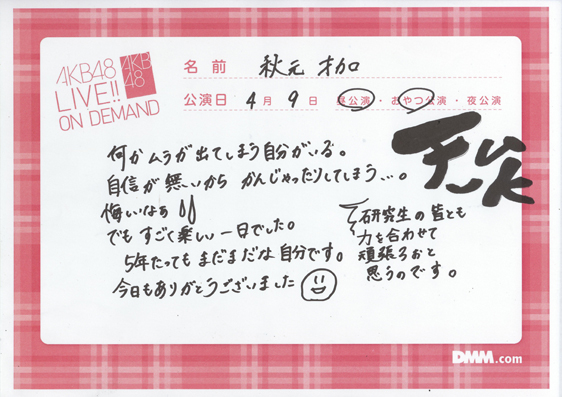 AKB48
LIVE!!
ON DEMAND
AKB
48
名前 秋元 才加
公演日 4月 9日 昼公演・おやつ公演・夜公演
何かムラが出てしまう自分がいる。
自信が無いから かんじゃったりしてしまう…。
悔いなぁ
でも すごく楽しい 一日でした。
5年たっても まだまだな 自分です。
今日もありがとうございました
研究生の皆とも
力を合わせて
頑張ろおと
思うのです。
DMM.com